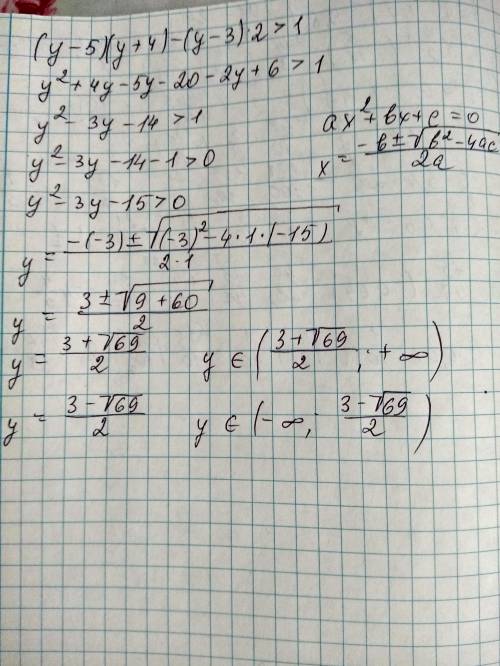 (y-5)(y+4)-(y-3)·2>1
y²+4y-5y-20-2y+6>1
y²-3y-14>1
y²-3y-14-1>0
y²-3y-15>0
ax²+bx+c=0
x=(-b±√(b²-4ac))/2a
y=(-(-3)±√((-3)²-4·1·(-15)))/(2·1)
y=(3±√(9+60))/2
y=(3+√69)/2 y∈((3+√69)/2;+∞)
y=(3-√69)/2 y∈(-∞, (3-√69)/2)